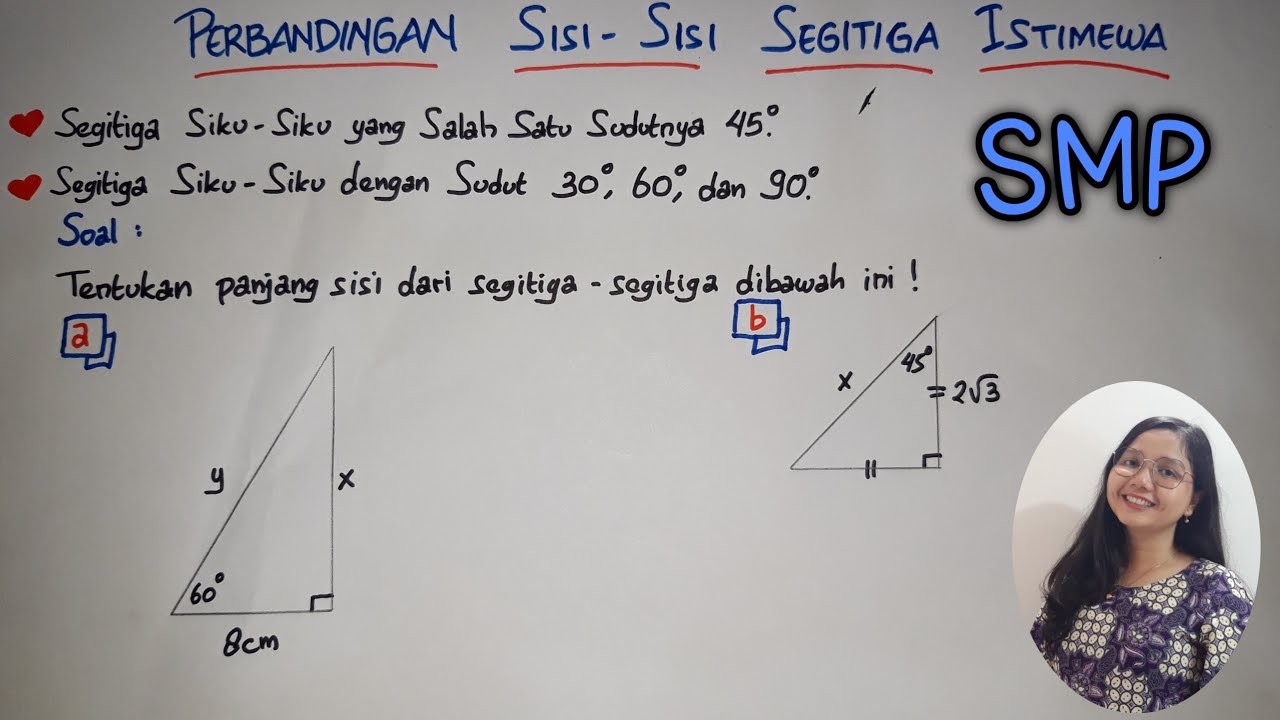 PERBANDINGAN SISI-SISI SEGITIGA ISTIMEWA
Segitiga Siku-Siku yang Salah Satu Sudutnya 45°.
SMP
Segitiga Siku-Siku dengan Sudut 30°, 60°, dan 90°.
Soal :
Tentukan panjang sisi dari segitiga-segitiga dibawah ini !
a
b
45°
x
= 2√3
y
x
60°
8cm